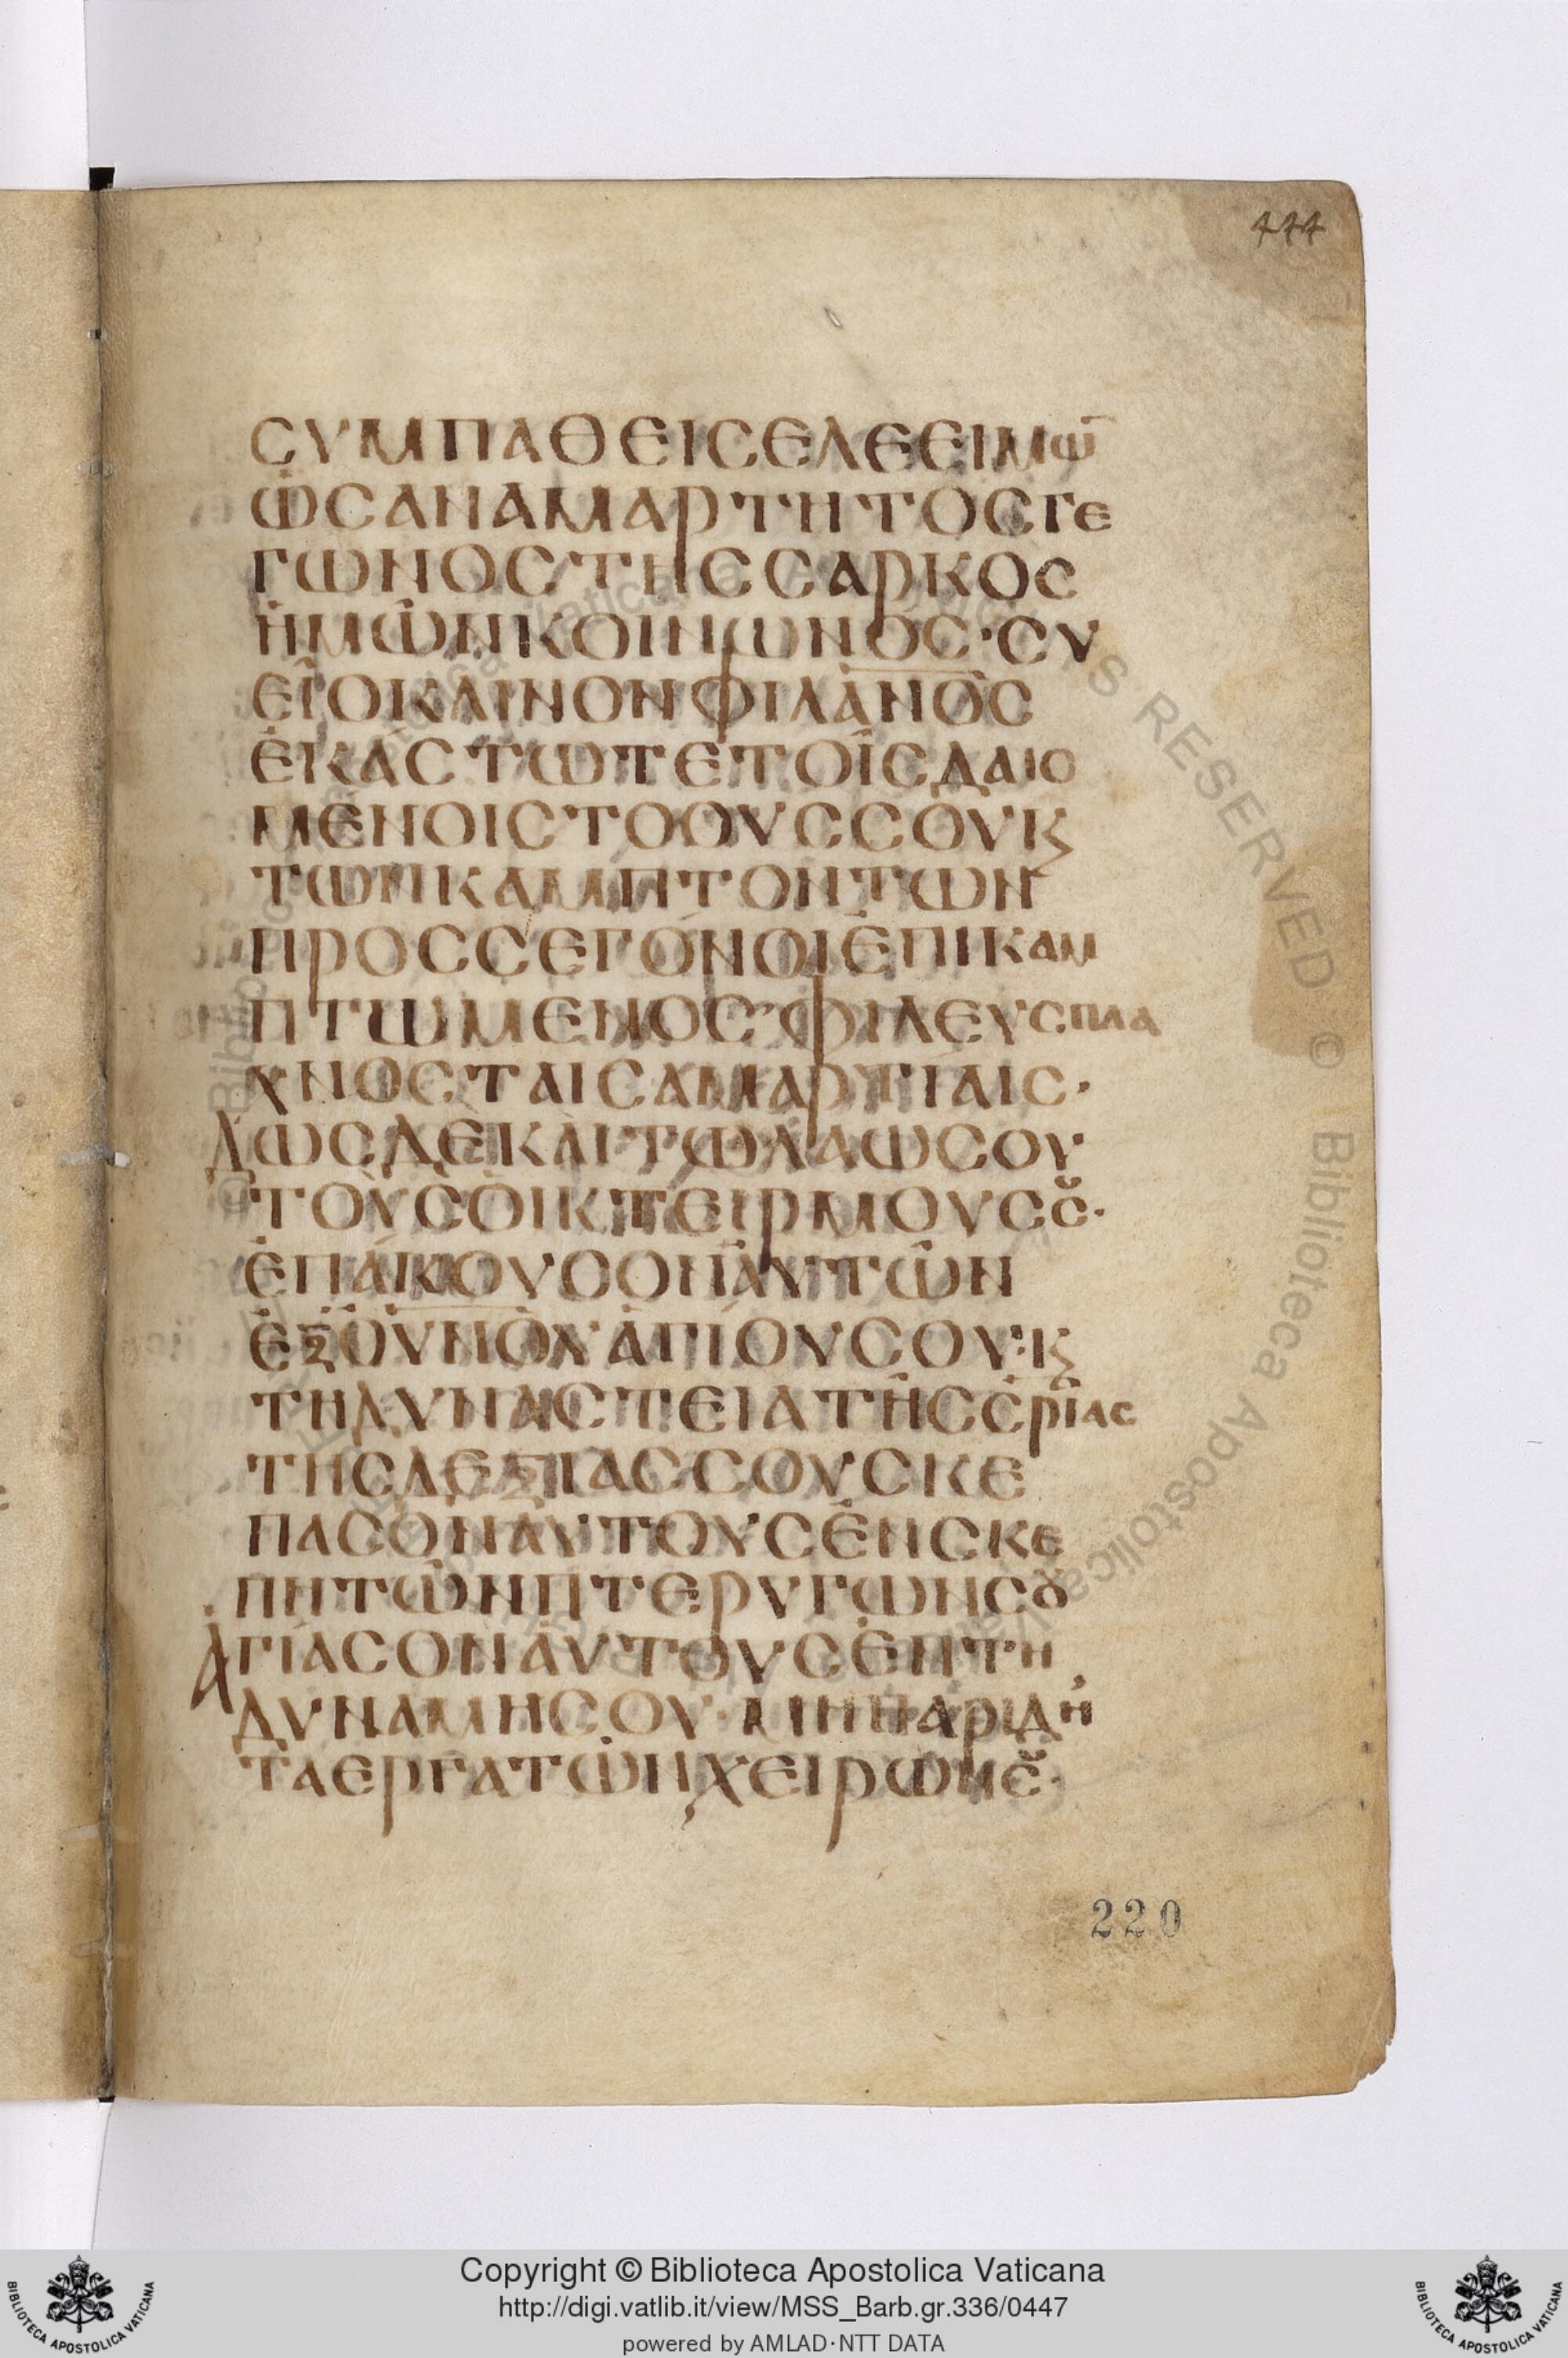 444
ϹΥΜΠΑΘΕΙϹΕΛΕΕΙΜΩ̅
ὩϹΑΝΑΜΑΡΤΗΤΟϹΓΕ
ΓΩΝΟϹΤΗϹϹΑΡΚΟϹ
ἩΜΩ͂ΝΚΟΙΝΩΝΟϹ·ϹΥ
ΕΙ͂ΟΚΛΙΝΟΝΦΙΛΑ̅Ν̅Ο̅Ϲ
ἙΚΑϹΤΩΤΕΤΟΙ͂ϹΔΑΙΟ
ΜΕΝΟΙϹΤΟΟΥϹϹΟΥΚϚ
ΤΩΝΚΑΜΠΤΟΝΤΩΝ
ΠΡΟϹϹΕΓΟΝΟΙἘΠΙΚΑΜ
ΠΤΩΜΕΝΟϹ·ΦΙΛΕΥϹΠΛΑ
ΧΝΟϹΤΑΙϹΑΜΑΡΤΙΑΙϹ·
ΔΩϹΔΕΚΑΙΤΩΛΑΩϹΟΥ
ΤΟῪϹΟΙΚΤΕΙΡΜΟΥϹϹȣ·
ἘΠΑΚΟΥϹΟΝΑΥΤΩ͂Ν
ἘΞΟΥΝΟΥἉΓΙΟΥϹΟΥ·Κ
ΤΗΔΥΝΑϹΤΕΙΑΤΗϹϹΕΡΙΑϹ
ΤΗϹΔΕΞΙΑϹϹΟΥϹΚΕ
ΠΑϹΟΝΑΥΤΟΥϹἘΝϹΚΕ
ΠΗΤΩ͂ΝΠΤΕΡΥΓΩΝϹȣ
ἉΓΙΑϹΟΝΑΥΤΟΥϹἘΝΤΗ
ΔΥΝΑΜΗϹΟΥ·ΜΗΠΑΡΙΔΗ
ΤΑΕΡΓΑΤΩ͂ΝΧΕΙΡΩΝϹȣ·
220
© Biblioteca Apostolica Vaticana
Copyright © Biblioteca Apostolica Vaticana
http://digi.vatlib.it/view/MSS_Barb.gr.336/0447
powered by AMLAD·NTT DATA
BIBLIOTECA APOSTOLICA VATICANA
BIBLIOTECA APOSTOLICA VATICANA